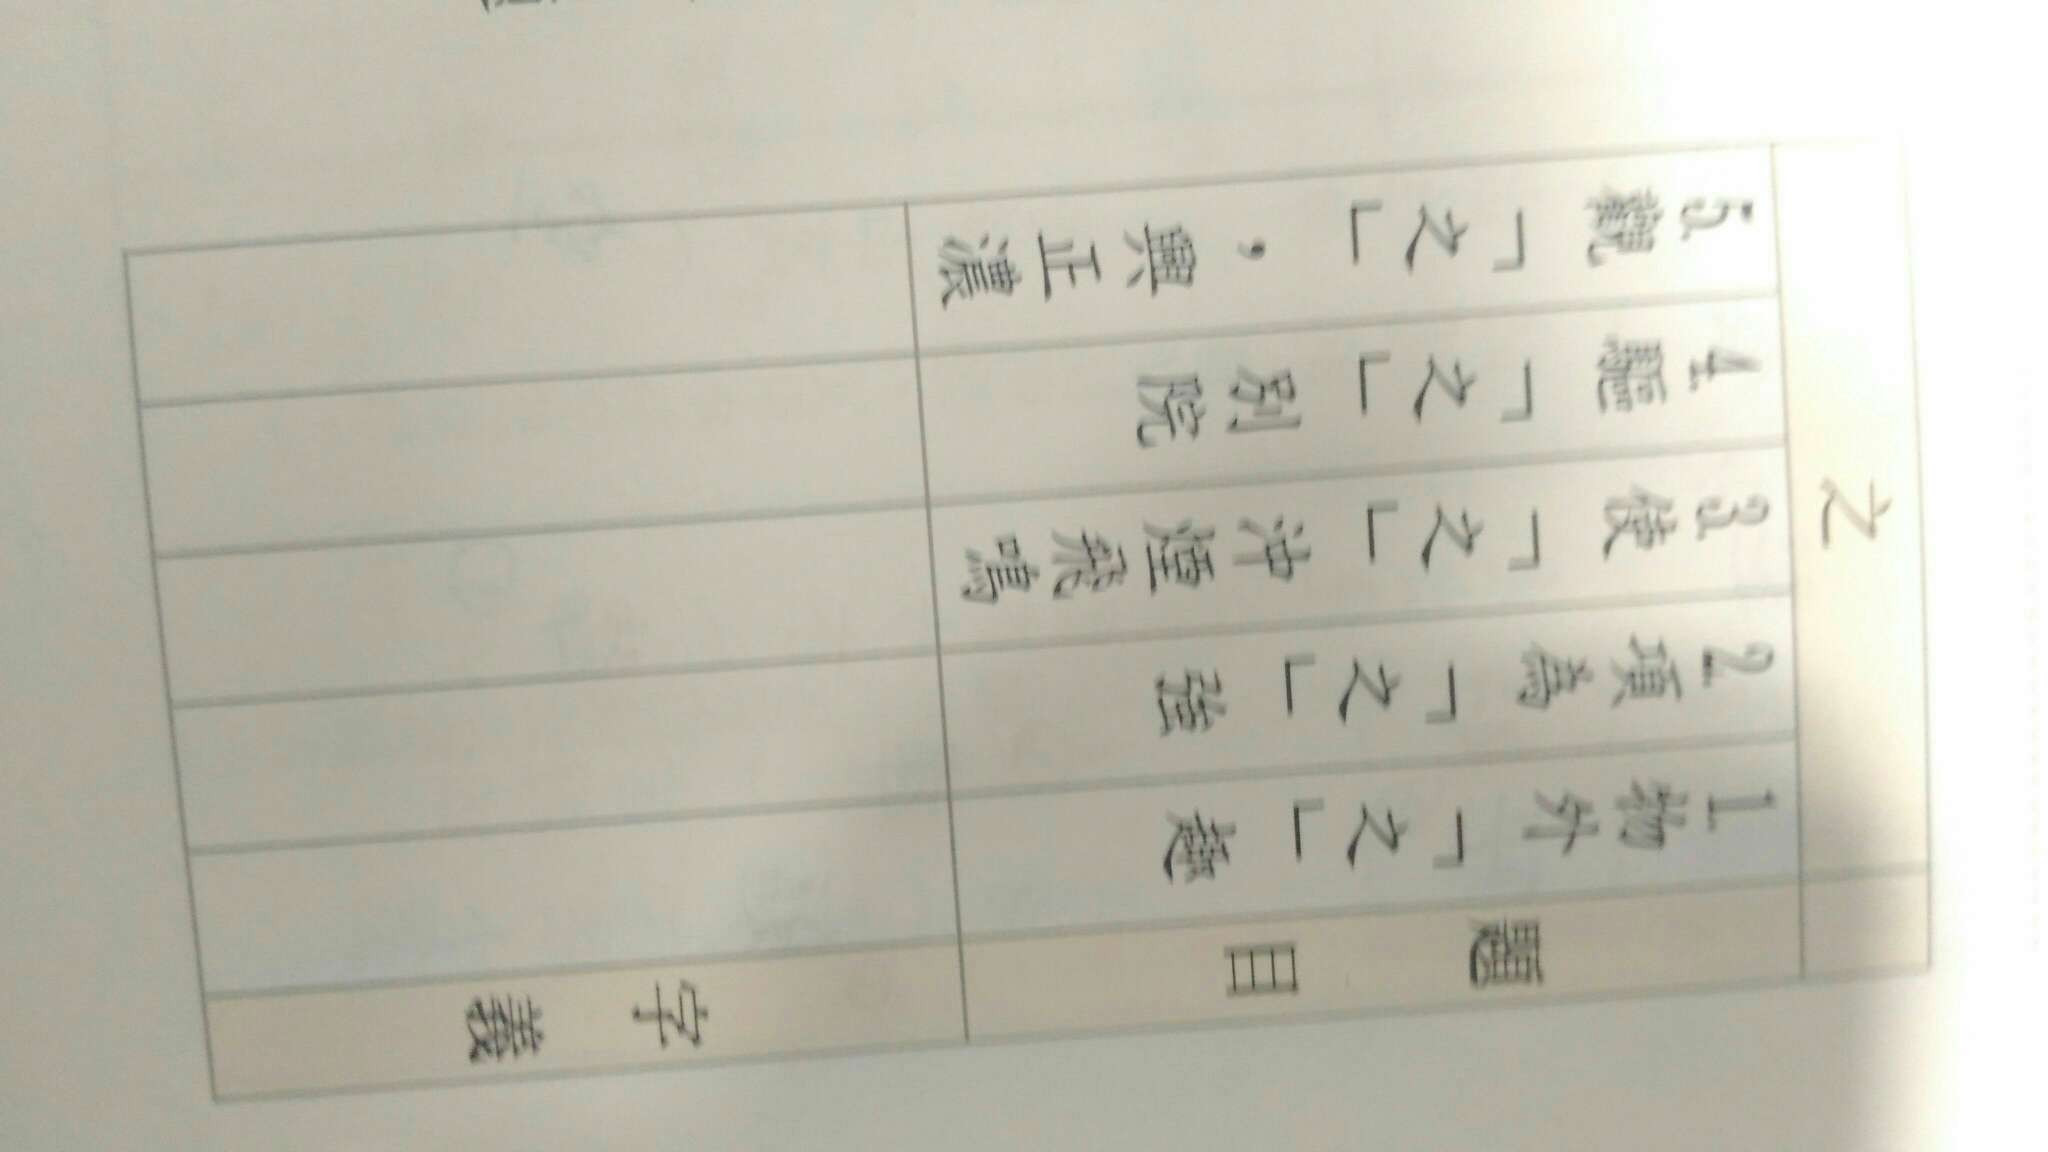 之
題目
字義
1物外「之」趣
2項為「之」強
3使「之」沖煙飛鳴
4驅「之」別院
5觀「之」，興正濃